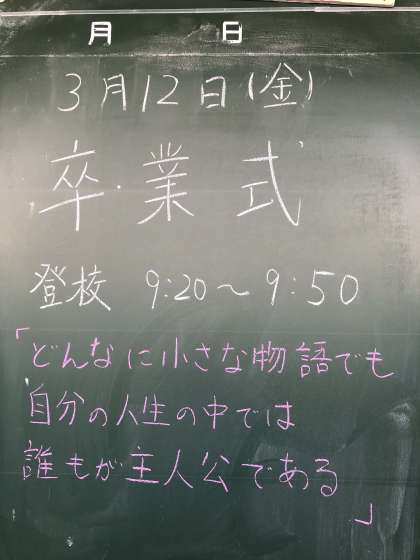 月 日
3月12日(金)
卒業式
登校 9:20～9:50
「どんなに小さな物語でも
自分の人生の中では
誰もが主人公である
」